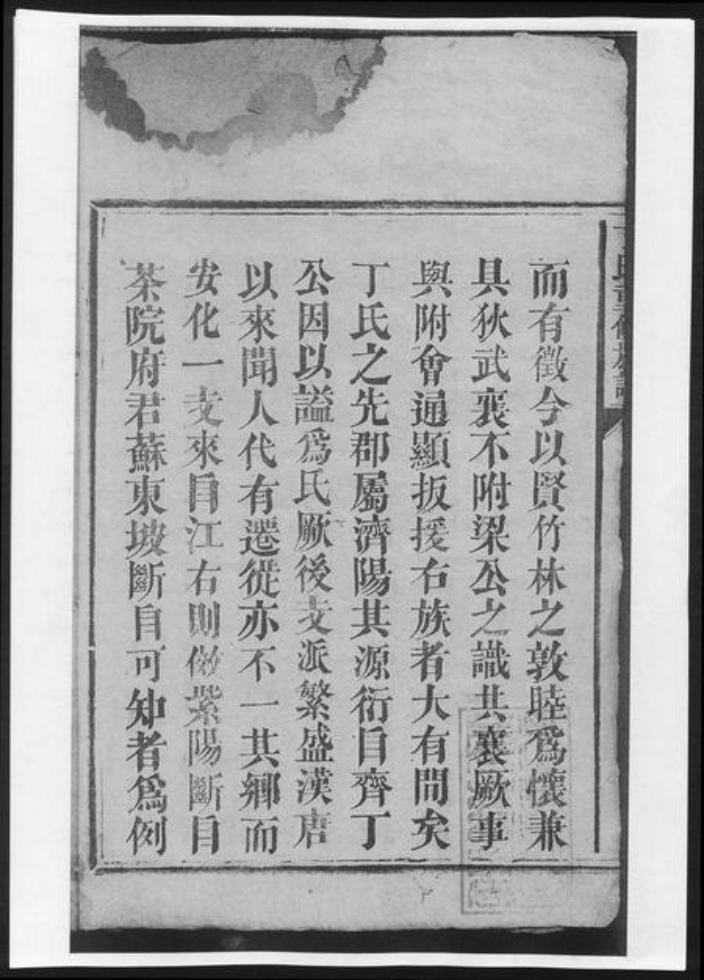 而有徵今以賢竹林之敦睦爲懷兼
具狄武襄不附梁公之識共襄厥事
與附會通顯扳援右族者大有間矣
丁氏之先郡屬濟陽其源衍自齊丁
公因以謚爲氏厥後支派繁盛漢唐
以來聞人代有遷徙亦不一其鄉而
安化一支來自江右則倣紫陽斷自
茶院府君蘇東坡斷自可知者爲例